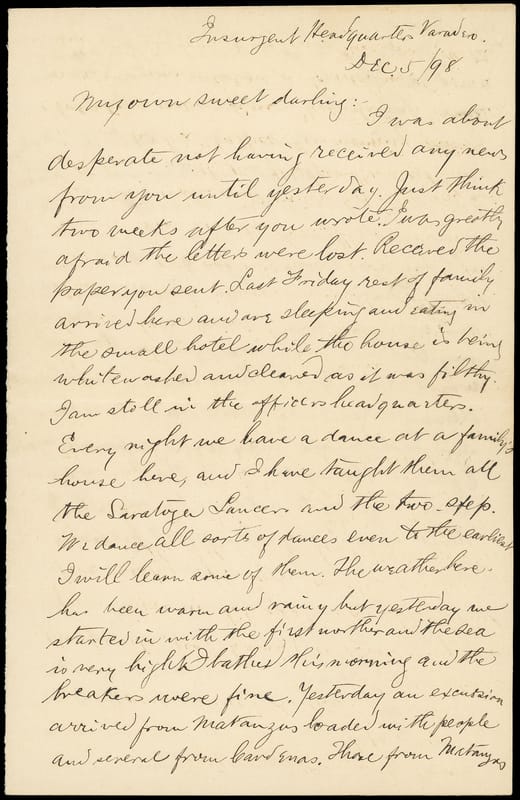 Insurgent Headquarters Varadero.
Dec, 5/98
My own sweet darling:-
I was about
desperate not having received any news
from you until yesterday. Just think
two weeks after you wrote. I was greatly
afraid the letters were lost. Received the
paper you sent. Last Friday rest of family
arrived here and are sleeping and eating in
the small hotel while the house is being
whitewashed and cleaned as it was filthy.
I am still in the officers headquarters.
Every night we have a dance at a family's
house here, and I have taught them all
the Saratoga Lancers and the two-step.
We dance all sorts of dances even to the earliest
I will learn some of them. The weather here
has been warm and rainy but yesterday we
started in with the first norther and the sea
is very high. I bathed this morning and the
breakers were fine. Yesterday an excussion
arrived from Matanzas loaded with people
and several from Cardenas. Those from Matanzas